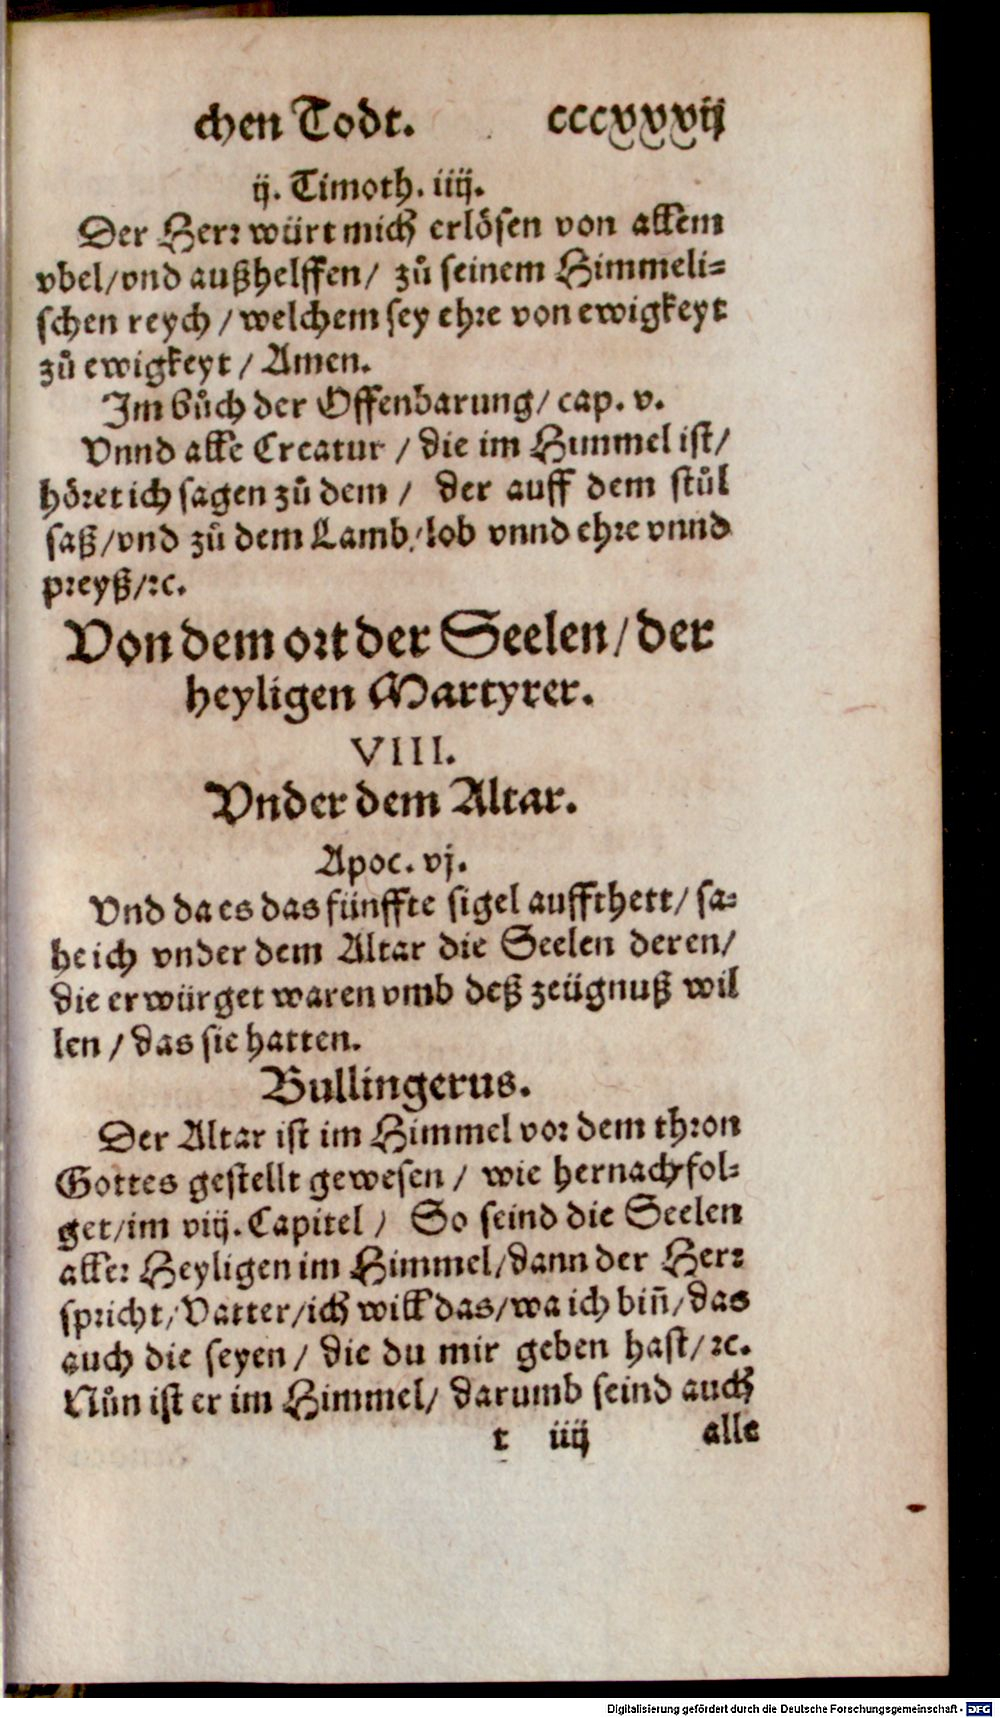 chen Todt. cccxxxvij
ij. Timoth. iiij.
Der Herr würt mich erlösen von allem
vbel/vnd außhelffen/ zů seinem Himmeli=
schen reych/welchem sey ehre von ewigkeyt
zů ewigkeyt/Amen.
Im bůch der Offenbarung/cap. v.
Vnnd alle Creatur/die im Himmel ist/
höret ich sagen zů dem/ der auff dem stůl
saß/vnd zů dem Lamb/lob vnnd ehre vnnd
preyß/ꝛc.
Von dem ort der Seelen/der
heyligen Martyrer.
VIII.
Vnder dem Altar.
Apoc. vj.
Vnd da es das fünffte sigel auffthett/sa=
he ich vnder dem Altar die Seelen deren/
die erwürget waren vmb deß zeügnuß wil
len/das sie hatten.
Bullingerus.
Der Altar ist im Himmel vor dem thron
Gottes gestellt gewesen/ wie hernach fol=
get/im viij. Capitel/ So seind die Seelen
aller Heyligen im Himmel/dann der Herr
spricht/Vatter/ich will das/wa ich biñ/das
auch die seyen/ die du mir geben hast/ꝛc.
Nůn ist er im Himmel/ darumb seind auch
t iiij alle
Digitalisierung gefördert durch die Deutsche Forschungsgemeinschaft - DFG